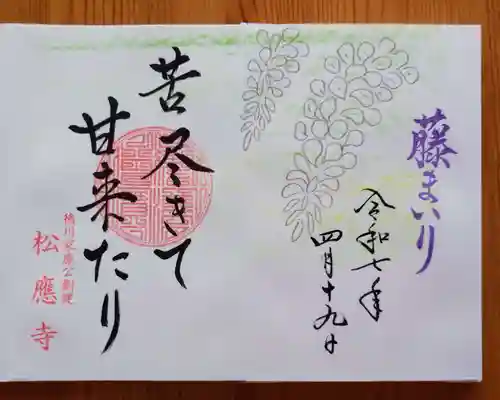 藤まいり
令和七年
四月十九日
苦尽きて
甘来たり
松應寺